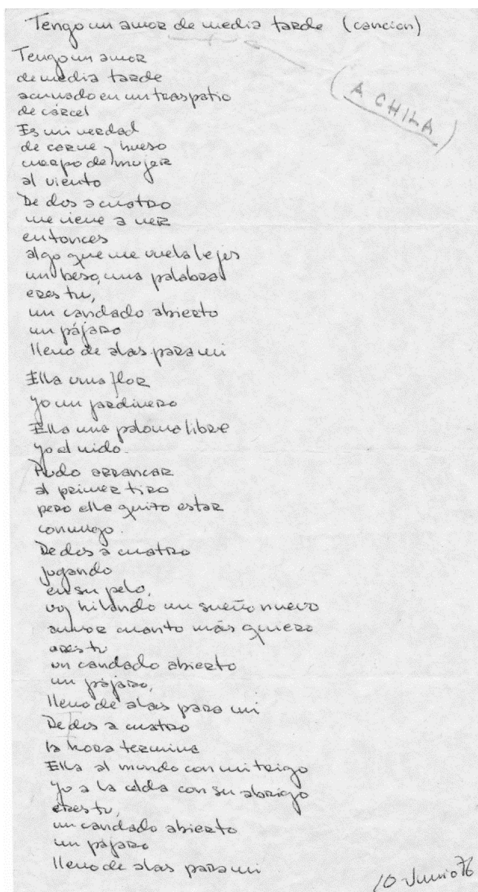 Tengo un amor de media tarde (cancion)
(A CHILA)
Tengo un amor
de media tarde
acunado en un traspatio
de cárcel
Es mi verdad
de carne y hueso
cuerpo de mujer
al viento
De dos a cuatro
me viene a ver
entonces
algo que me vuela lejos
un beso, una palabra
eres tu,
un candado abierto
un pájaro
lleno de alas para mi
Ella una flor
yo un jardinero
Ella una paloma libre
yo el nido.
Pudo arrancar
al primer tiro
pero ella quiso estar
conmigo.
De dos a cuatro
jugando
en su pelo,
voy hilando un sueño nuevo
amor cuanto más quiero
eres tu
un candado abierto
un pájaro,
lleno de alas para mi
De dos a cuatro
la hora termina
Ella al mundo con mi trigo
Yo a la celda con su abrigo
eres tu,
un candado abierto
un pájaro
lleno de alas para mi
10 Junio 76